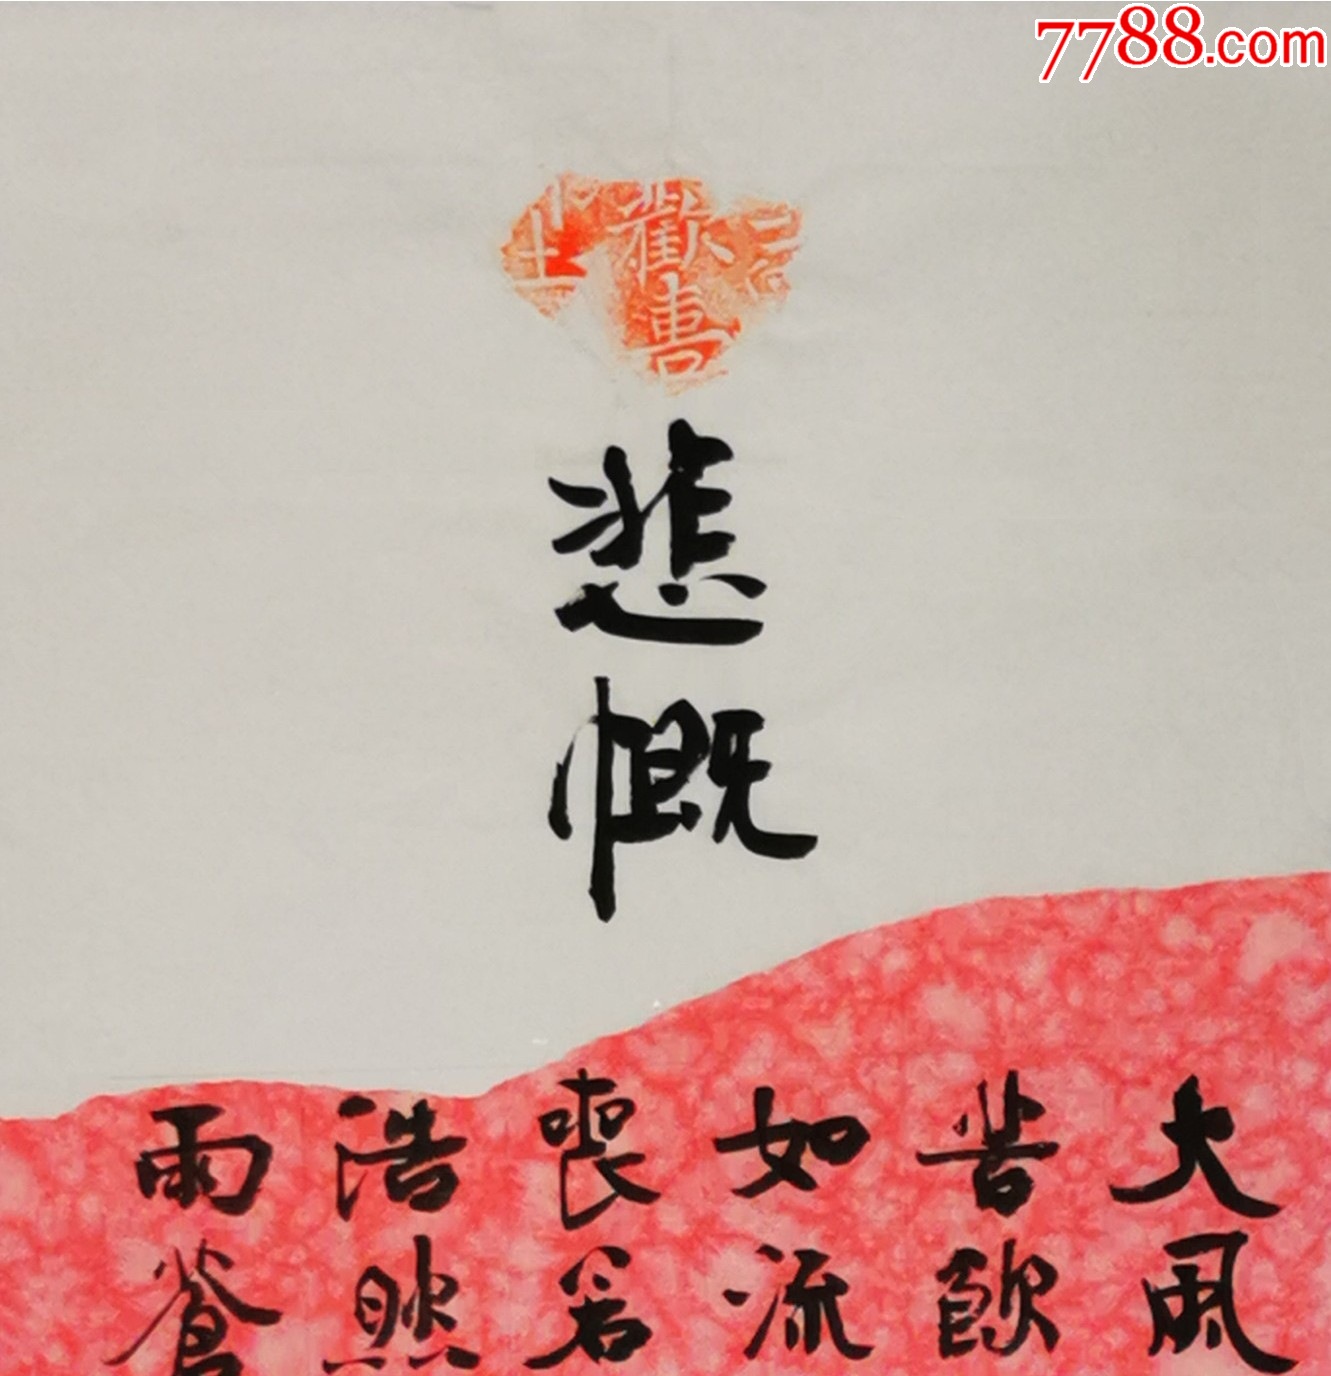 7788.com
歡
悲慨
大風
苦飲
如流
喪若
浩然
雨蒼